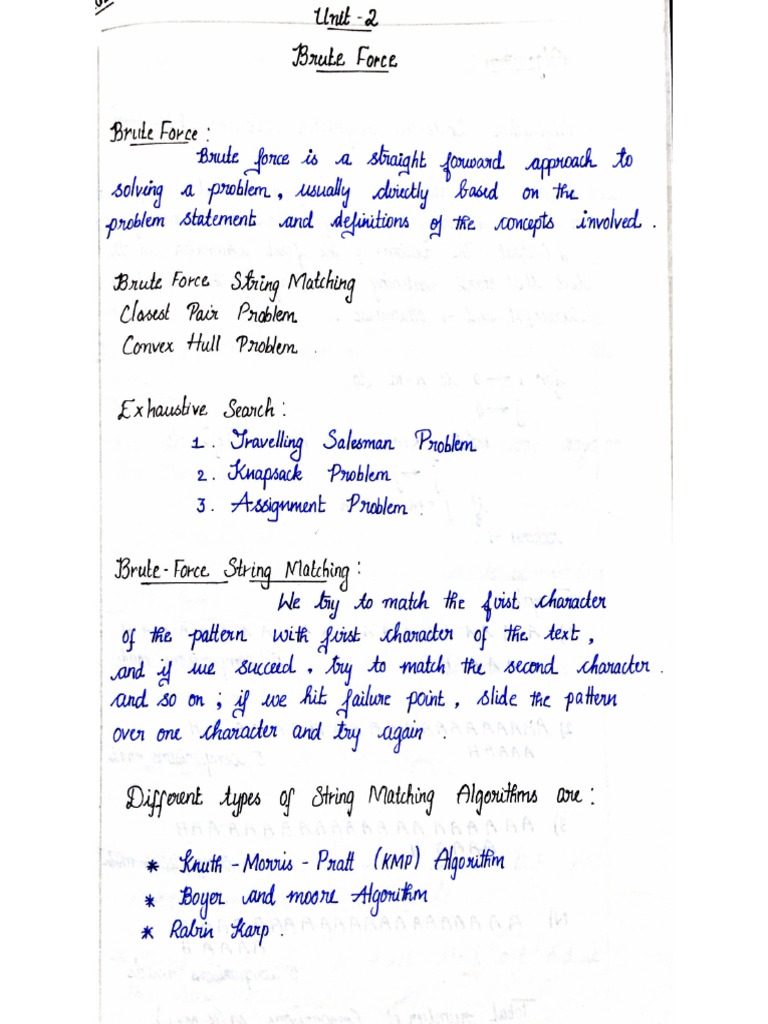 Unit - 2
Brute Force
Brute Force :
Brute force is a straight forward approach to
solving a problem, usually directly based on the
problem statement and definitions of the concepts involved.
Brute Force String Matching
Closest Pair Problem
Convex Hull Problem.
Exhaustive Search:
1. Travelling Salesman Problem
2. Knapsack Problem
3. Assignment Problem.
Brute-Force String Matching:
We try to match the first character
of the pattern with first character of the text,
and if we succeed, try to match the second character.
and so on; if we hit failure point, slide the pattern
over one character and try again.
Different types of String Matching Algorithms are:
* Knuth-Morris-Pratt (KMP) Algorithm
* Boyer and moore Algorithm
* Rabin Karp.